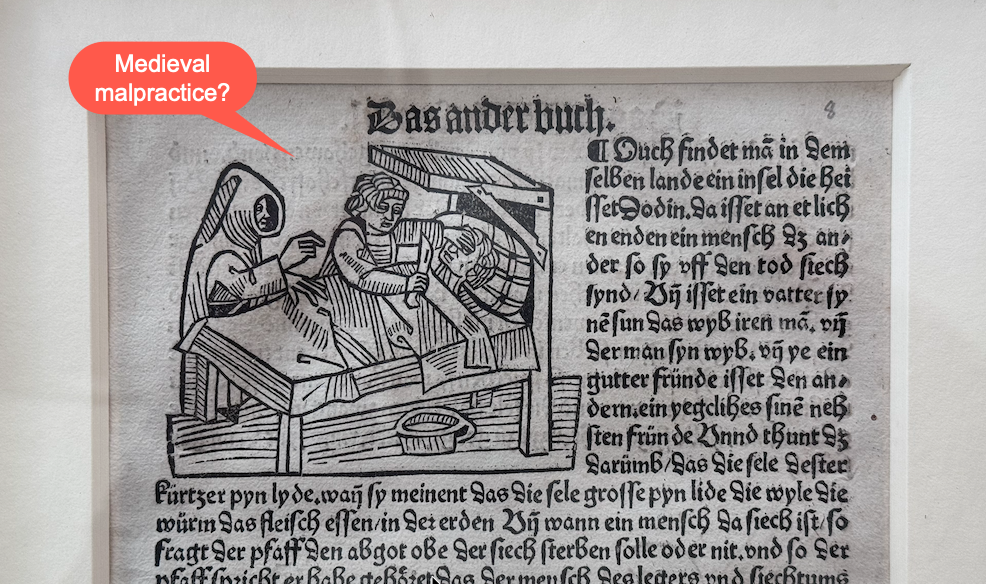 Medieval
malpractice?
Das ander buch.
8
¶ Ouch findet mā in dem
selben lande ein insel die hei
sset Dodin. da isset an etlich
en enden ein mensch dz an⸗
der so sy vff den tod siech
synd/ Vn̄ isset ein vatter sy
nē sun das wyb iren mā. vn̄
der man syn wyb. vn̄ ye ein
gutter fründe isset den an⸗
dern. ein yegcliches sinē neh
sten fründe Vnnd thunt dz
darūmb/ das die sele dester
kürtzer pyn lyde. wan̄ sy meinent das die sele grosse pyn lide die wyle die
würm das fleisch essen/ in der erden Vn̄ wann ein mensch da siech ist/ so
fragt der pfaff den abgot obe der siech sterben solle oder nit. vnd so der
pfaff spricht er habe gehöret das der mensch des legers vnd siechtums